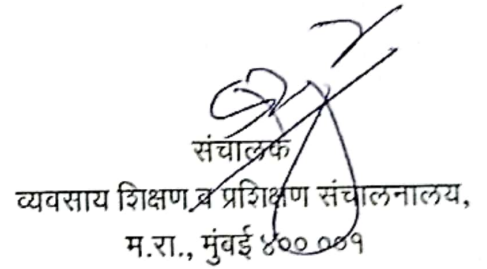 संचालक
व्यवसाय शिक्षण व प्रशिक्षण संचालनालय,
म.रा., मुंबई ४०० ००१